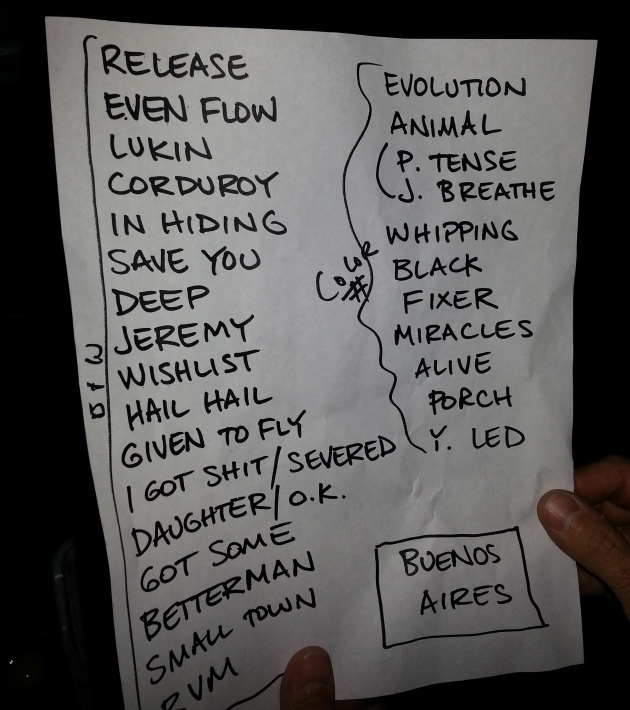 RELEASE
EVEN FLOW
LUKIN
CORDUROY
IN HIDING
SAVE YOU
DEEP
JEREMY
WISHLIST
HAIL HAIL
GIVEN TO FLY
I GOT SHIT/SEVERED
DAUGHTER/O.K.
GOT SOME
BETTERMAN
SMALL TOWN
RVM
B + W
EVOLUTION
ANIMAL
P. TENSE
J. BREATHE
WHIPPING
BLACK
FIXER
MIRACLES
ALIVE
PORCH
Y. LED
COLOR
BUENOS
AIRES